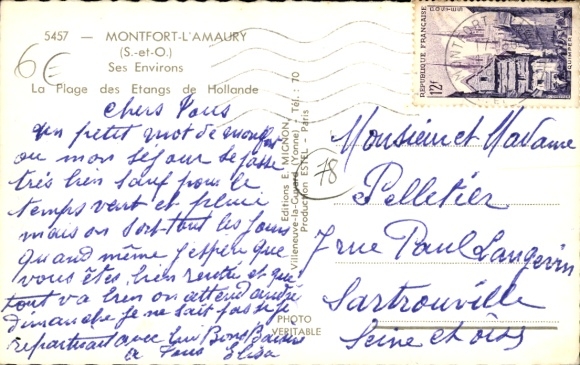 5457 — MONTFORT-L'AMAURY
(S.-et-O.)
Ses Environs
La Plage des Etangs de Hollande
6€
Chers Tous
un petit mot de Monfort
ou mon séjour se passe
très bien sauf pour le
temps vent et pluie
mais on sort tout les jours
quand même j'espère que
vous êtes bien rentré et que
tout va bien on attend andré
dimanche je ne sait pas si je
repartirait avec lui Bons Baisers
a Tous Elisa
Editions E. MIGNON
Villeneuve-la-Guyard (Yonne) - Tél. : 70
Production ESTEL - Paris
PHOTO
VERITABLE
78
REPUBLIQUE FRANÇAISE
POSTES
12F
QUIMPER
MONTFORT
Monsieur et Madame
Pelletier
7 rue Paul Langevin
Sartrouville
Seine et Oise